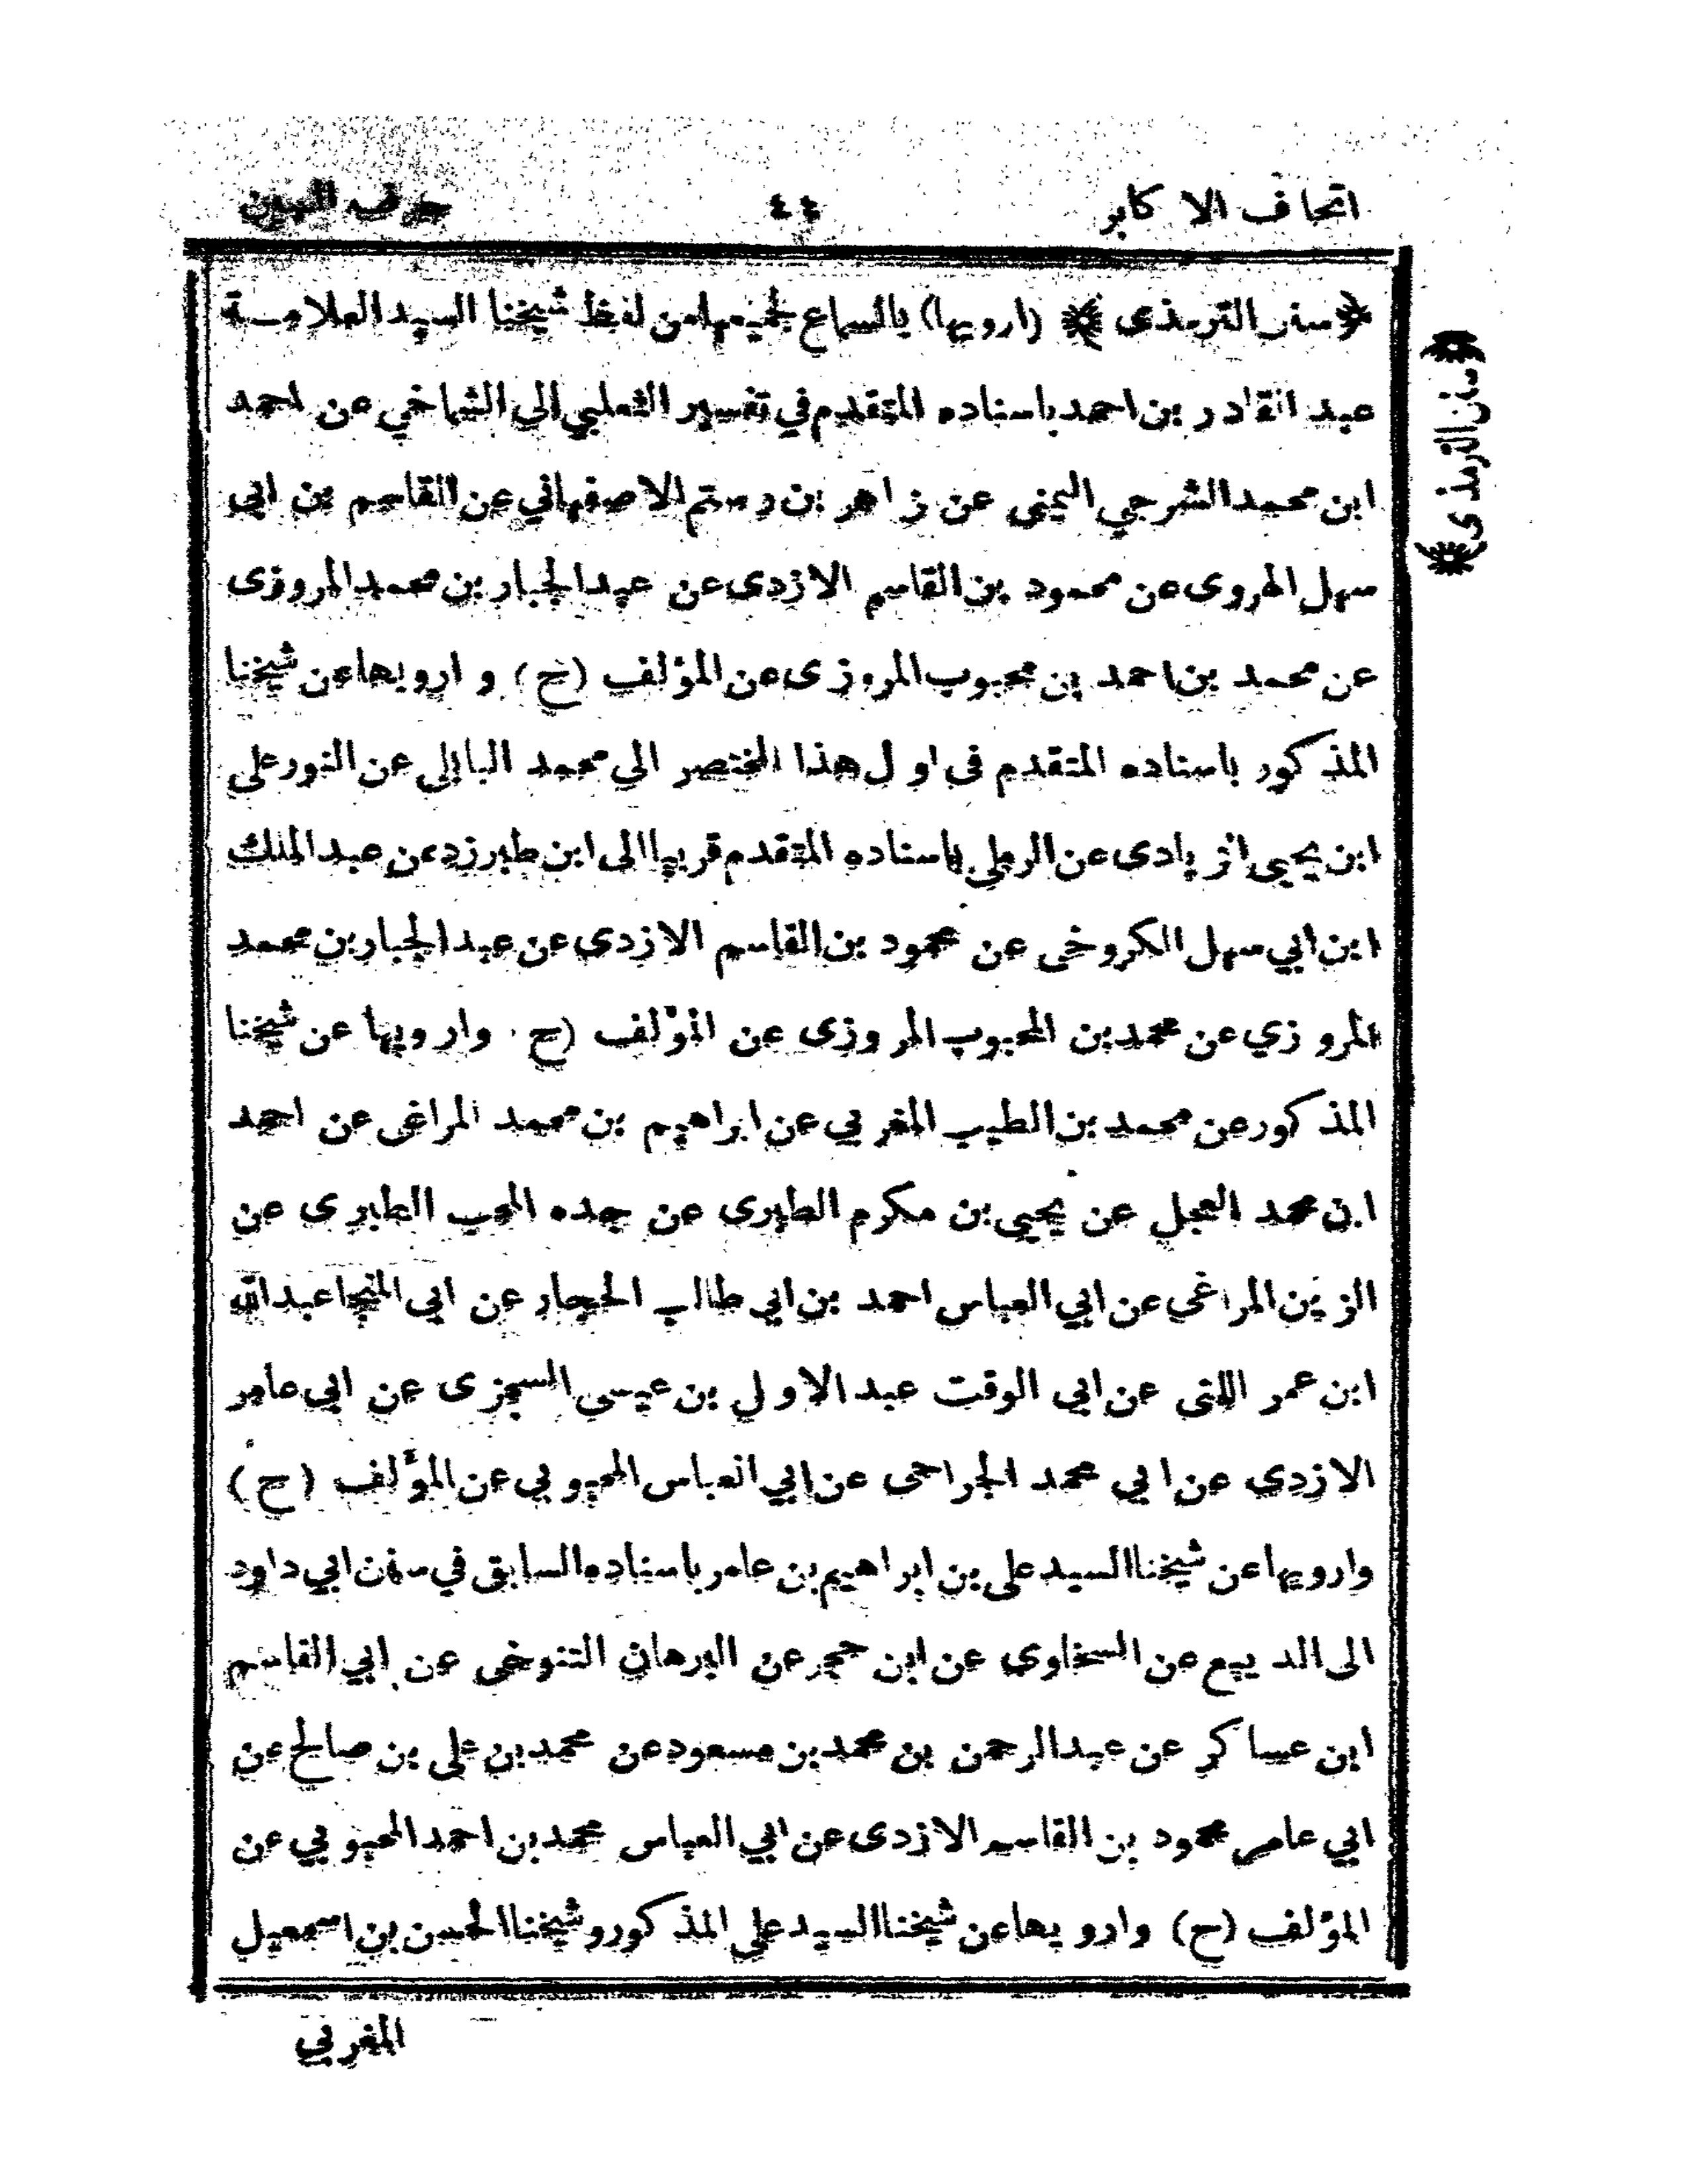 اتحاف الاكابر ٤٤ حرف السين
﴿سنن الترمذى﴾ (ارويها) بالسماع لجميعها من لفظ شيخنا السيد العلامة
﴿سنن الترمذى﴾
عبد القادر بن احمد باسناده المتقدم في تفسير الثعلبي الى الشماخي عن احمد
ابن محمد الشرجي اليمنى عن زاهر بن رستم الاصفهاني عن القاسم بن ابى
سهل الهروى عن محمود بن القاسم الازدى عن عبد الجبار بن محمد المروزى
عن محمد بن احمد بن محبوب المروزى عن المؤلف (ح) و ارويها عن شيخنا
المذكور باسناده المتقدم فى اول هذا المختصر الي محمد البابلى عن النور على
ابن يحيى الزيادى عن الرملي باسناده المتقدم قريبا الى ابن طبرزد عن عبد الملك
ابن ابي سهل الكروخى عن محمود بن القاسم الازدى عن عبد الجبار بن محمد
المروزي عن محمد بن المحبوب المروزى عن المؤلف (ح وارويها عن شيخنا
المذكور عن محمد بن الطيب المغربي عن ابراهيم بن محمد المراغى عن احمد
ابن محمد العجل عن يحيى بن مكرم الطبرى عن جده المحب الطبرى عن
الزين المراغى عن ابي العباس احمد بن ابي طالب الحجار عن ابي المنجا عبد الله
ابن عمر اللتى عن ابي الوقت عبد الاول بن عيسى السجزى عن ابي عامر
الازدى عن ابي محمد الجراحى عن ابي العباس المحبوبي عن المؤلف (ح)
وارويها عن شيخنا السيد على بن ابراهيم بن عامر باسناده السابق في سنن ابي داود
الى الديبع عن السخاوى عن ابن حجر عن البرهان التنوخى عن ابي القاسم
ابن عساكر عن عبد الرحمن بن محمد بن مسعود عن محمد بن على بن صالح عن
ابي عامر محمود بن القاسم الازدى عن ابي العباس محمد بن احمد المحبوبي عن
المؤلف (ح) وارويها عن شيخنا السيد على المذكور وشيخنا الحسن بن اسمعيل
المغربي